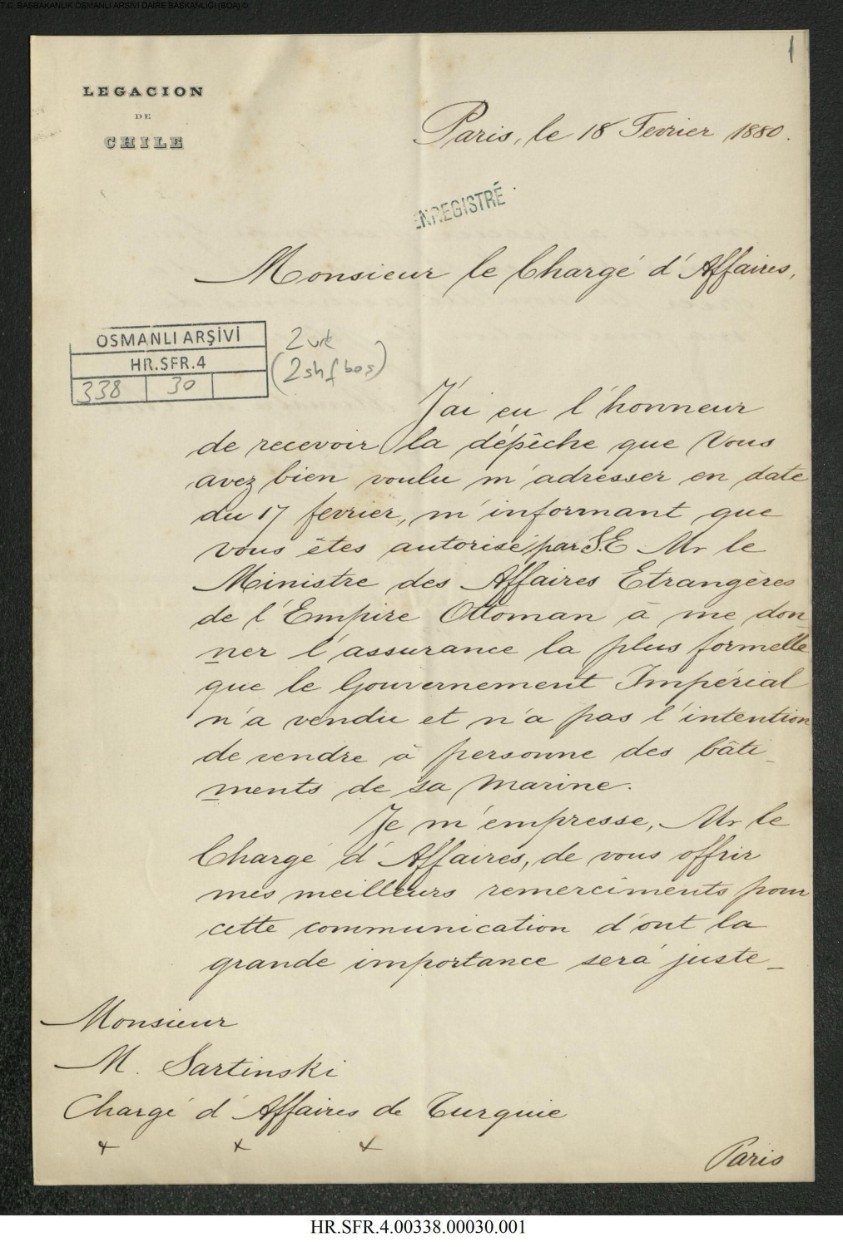 T.C. BAŞBAKANLIK OSMANLI ARŞİVİ DAİRE BAŞKANLIĞI (BOA) ©
1
LEGACION
DE
CHILE
Paris, le 18 Fevrier 1880.
ENREGISTRÉ
Monsieur le Chargé d'Affaires,
OSMANLI ARŞİVİ
HR.SFR.4
338 30
2 vrk
(2 shf boş)
J'ai eu l'honneur
de recevoir la dépêche que Vous
avez bien voulu m'adresser en date
du 17 fevrier, m'informant que
vous êtes autorisé par S.E Mr le
Ministre des Affaires Etrangères
de l'Empire Ottoman à me don-
ner l'assurance la plus formelle
que le Gouvernement Impérial
n'a vendu et n'a pas l'intention
de vendre à personne des bâti-
ments de sa marine.
Je m'empresse, Mr le
Chargé d'Affaires, de vous offrir
mes meilleurs remerciments pour
cette communication d'ont la
grande importance sera juste-
Monsieur
M. Sartinski
Chargé d'Affaires de Turquie
Paris
HR.SFR.4.00338.00030.001